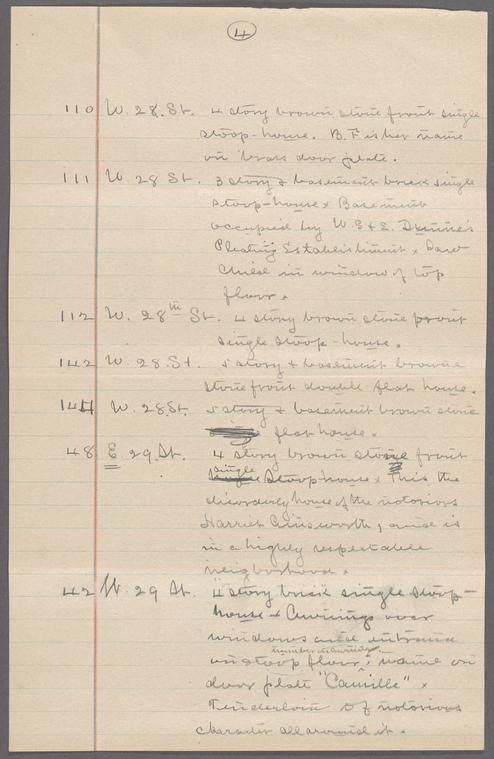 4
110 W. 28. St. 4 story brown stone front single
stoop-house. B.F is her name
on brass door plate.
111 W. 28 St. 3 story & basement brick single
stoop-house x Basement
occupied by W. E & E. Dunne's
Pleating Establishment x Saw
Child in window of top
floor x
112 W. 28th St. 4 story brown stone front
single stoop-house.
142 W. 28. St. 5 story & basement browne
stone front double flat house.
144 W. 28 St. 5 story & basement brown stone
flat house.
48 E 29. St. 4 story brown stone front
single Stoop house x This the
disorderly house of the notorious
Harriet Ainsworth, and is
in a highly respectable
neigborhood x
42 W. 29 St. 4 story brick single stoop-
house x Awnings over
windows and entrance
number on awning
on stoop floor; name on
door plate "Camille" x
Tenderloin of notorious
character all around it.